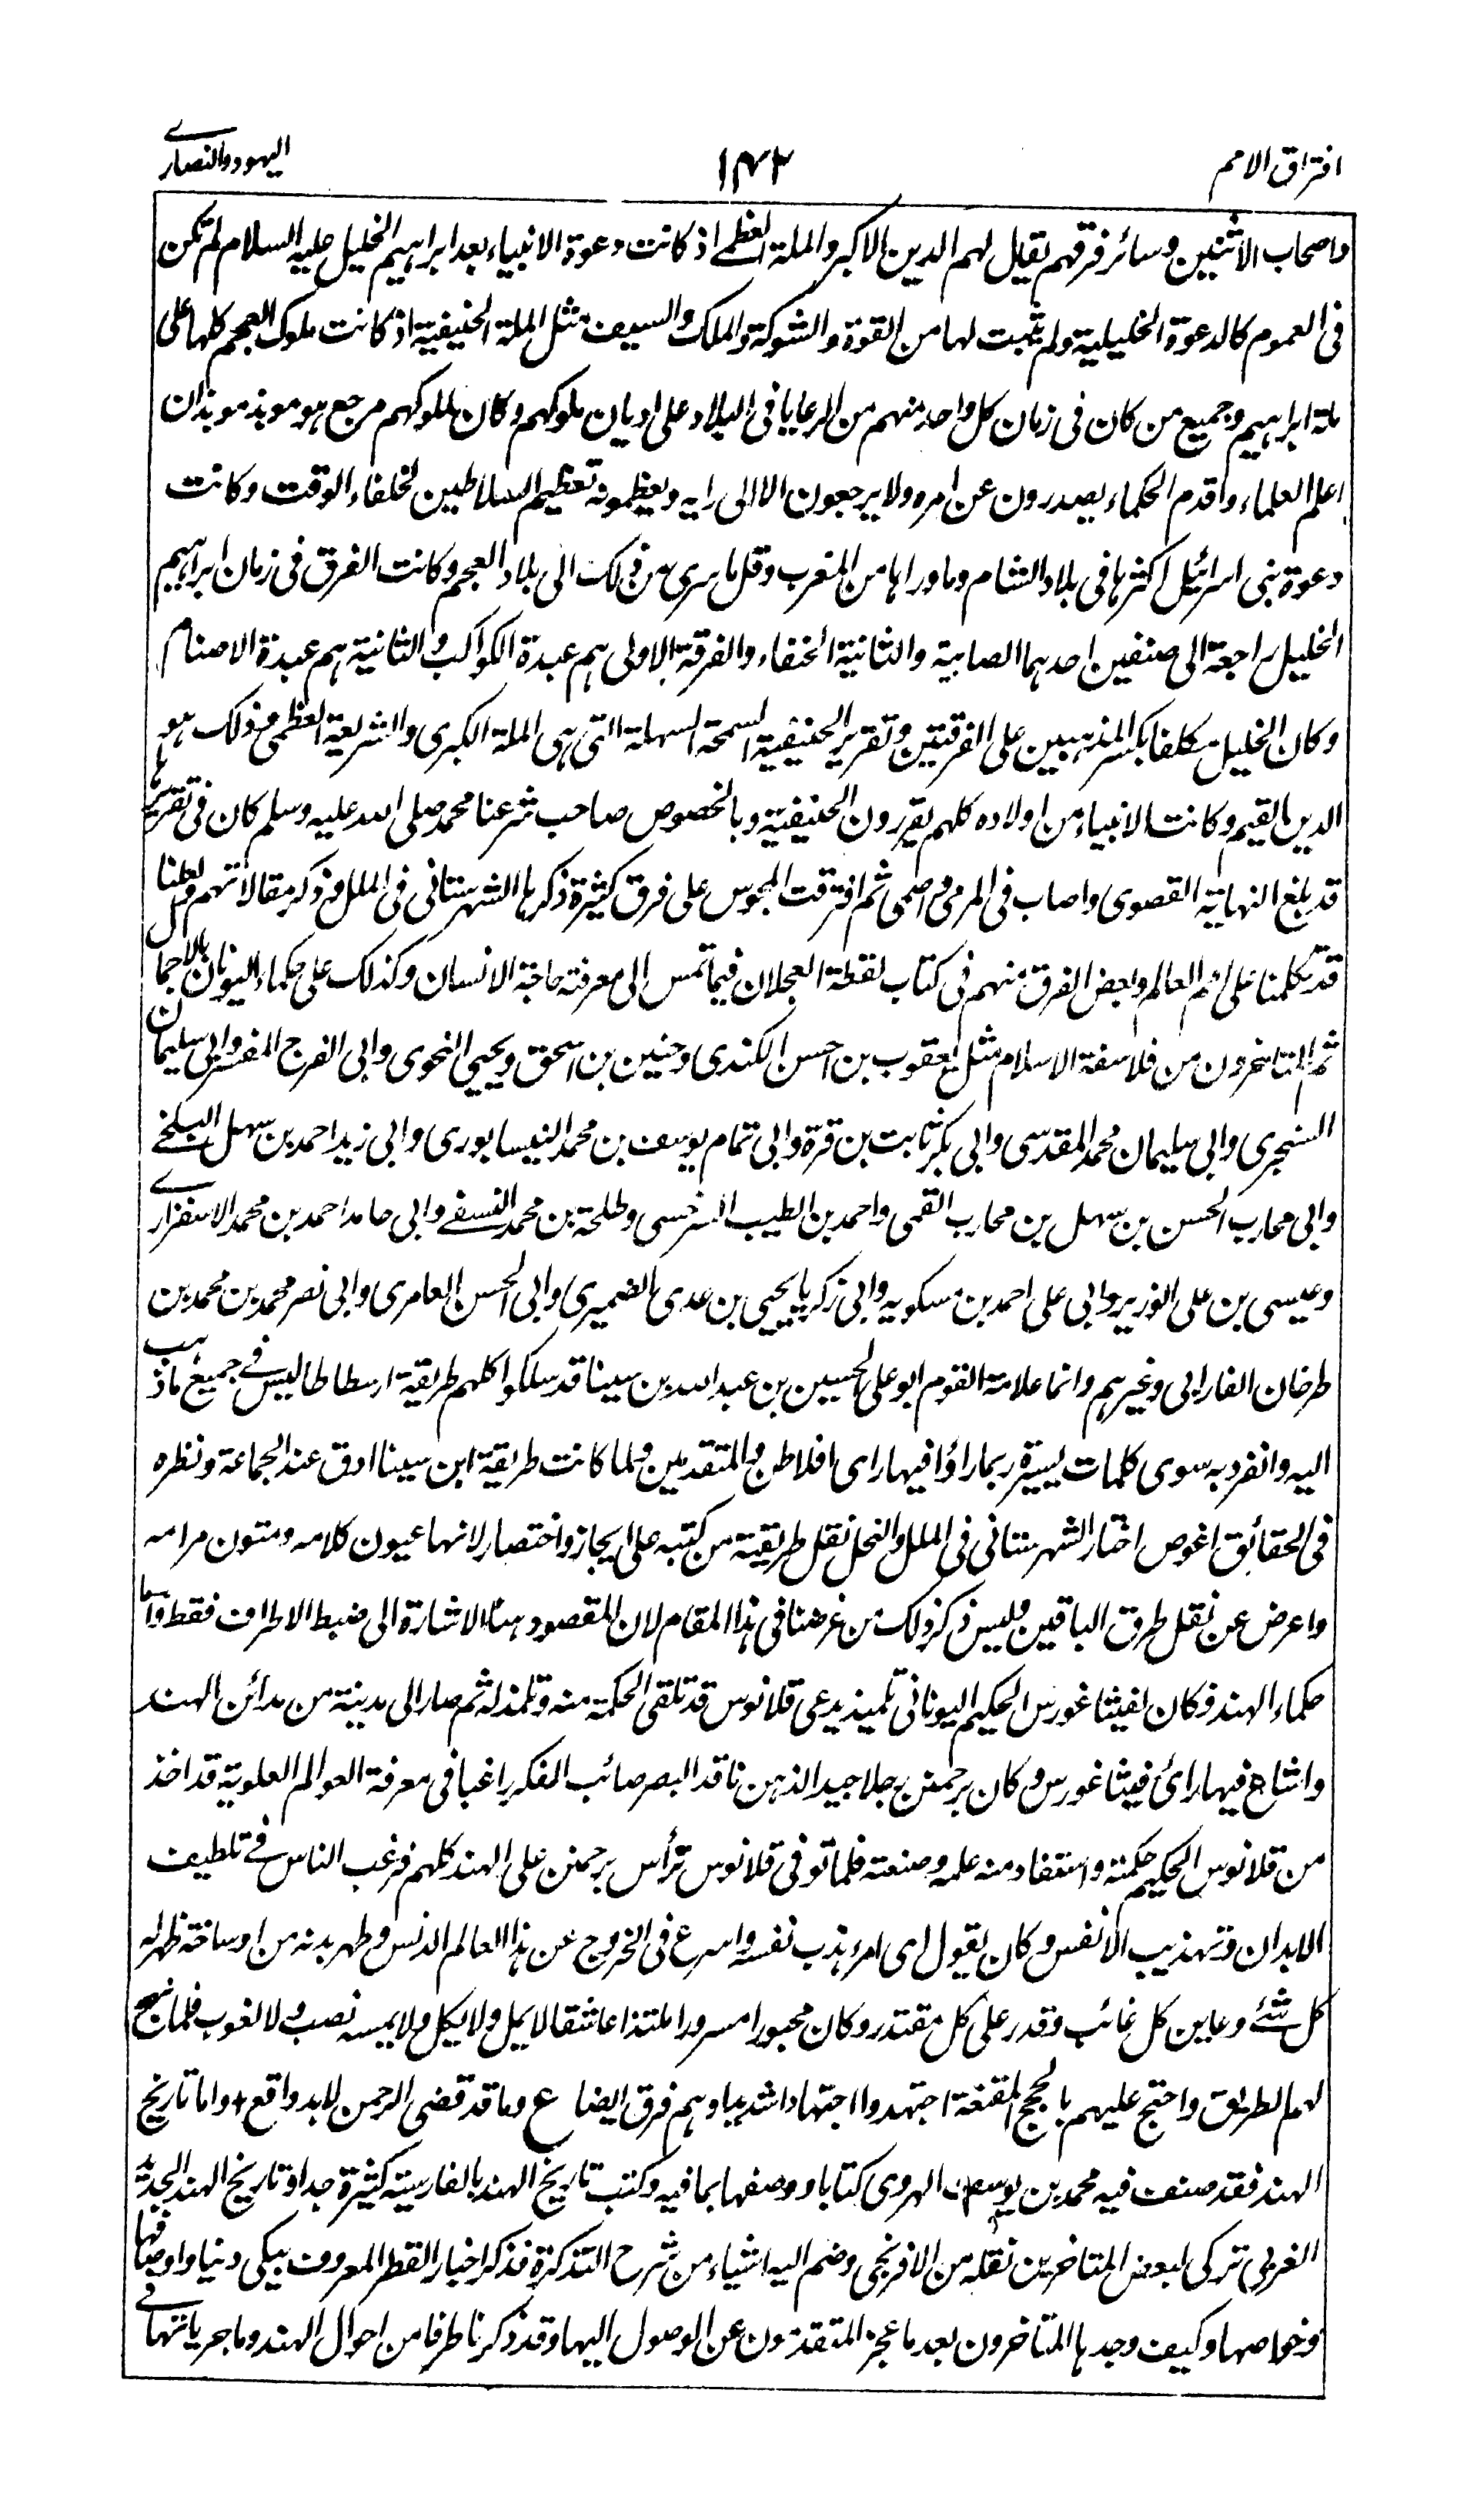 افتراق الامم
١٤٢
اليهود والنصارى
واصحاب الاثنين وسائر فرقهم يقال لهم الدين الاكبر والملة العظمى اذ كانت دعوة الانبياء بعد ابراهيم الخليل عليه السلام لم تكن
فى العموم كالدعوة الخليلية ولم يثبت لها من القوة والشوكة والملك والسيف مثل الملة الحنيفية اذ كانت ملوك العجم كلها على
ملة ابراهيم وجميع من كان فى زمان كل واحد منهم من الرعايا فى البلاد على اديان ملوكهم وكان لملوكهم مرجع هو موبذ موبذان
اعلم العلماء واقدم الحكماء يصدرون عن امره ولا يرجعون الا الى رايه ويعظمونه تعظيم السلاطين لخلفاء الوقت وكانت
دعوة بنى اسرائيل اكثرها فى بلاد الشام وماوراها من المغرب وقل ما سرى من ذلك الى بلاد العجم وكانت الفرق فى زمان ابراهيم
الخليل راجعة الى صنفين احدهما الصابية والثانية الحنفاء والفرقة الاولى هم عبدة الكواكب والثانية هم عبدة الاصنام
وكان الخليل مكلفا بكسر المذهبين على الفرقتين وتقرير الحنيفية السمحة السهلة التى هى الملة الكبرى والشريعة العظمى وذلك هو
الدين القيم وكانت الانبياء من اولاده كلهم يقررون الحنيفية وبالخصوص صاحب شرعنا محمد صلى الله عليه وسلم كان فى تقريرها
قد بلغ النهاية القصوى واصاب فى المرمى واصمى ثم افترقت المجوس على فرق كثيرة ذكرها الشهرستانى فى الملل وذكر مقالاتهم ولعلنا
قد تكلمنا على امم العالم وبعض الفرق منهم فى كتاب لقطة العجلان فيما تمس الى معرفته حاجة الانسان وكذلك على حكماء اليونان بالاجمال
ثم المتاخرون من فلاسفة الاسلام مثل يعقوب بن احسن الكندى وحنين بن اسحق ويحيى النحوى وابى الفرج المفسر وابى سليمان
السنجرى وابى سليمان محمد المقدسى وابى بكر ثابت بن قرة وابى تمام يوسف بن محمد النيسابورى وابى زيد احمد بن سهل البلخى
وابى محارب الحسن بن سهل بن محارب القمى واحمد بن الطيب السرخسى وطلحة بن محمد النسفى وابى حامد احمد بن محمد الاسفزارى
وعيسى بن على الوزير وابى على احمد بن مسكويه وابى زكريا يحيى بن عدى الضميرى وابى الحسن العامرى وابى نصر محمد بن محمد بن
طرخان الفارابى وغيرهم وانما علامة القوم ابو على الحسين بن عبد الله بن سينا قد سلكوا كلهم طريقة ارسطاطاليس فى جميع ما ذهب
اليه وانفرد به سوى كلمات يسيرة ربما راؤا فيها راى افلاطن والمتقدمين ولما كانت طريقة ابن سينا ادق عند الجماعة ونظره
فى الحقائق اغوص اختار الشهرستانى فى الملل والنحل نقل طريقته من كتبه على ايجاز واختصار لانها عيون كلامه ومتون مرامه
واعرض عن نقل طرق الباقين وليس ذكر ذلك من غرضنا فى هذا المقام لان المقصود هنا الاشارة الى ضبط الاطراف فقط واما
حكماء الهند فكان لفيثاغورس الحكيم اليونانى تلميذ يدعى قلانوس قد تلقى الحكمة منه وتلمذ له ثم صار الى مدينة من مدائن الهند
واشاع فيها رائ فيثاغورس وكان برحمنن رجلا جيد الذهن ناقد البصر صائب الفكر راغبا فى معرفة العوالم العلوية قد اخذ
من قلانوس الحكيم حكمته واستفاد منه علمه وصنعته فلما توفى قلانوس ترأس برحمنن على الهند كلهم فرغب الناس فى تلطيف
الابدان وتهذيب الانفس وكان يقول اى امرء هذب نفسه واسرع فى الخروج عن هذا العالم الدنس وطهر بدنه من اوساخه ظهر له
كل شئ وعاين كل غائب وقدر على كل مقتدر وكان محبورا مسرورا ملتذا عاشقا لا يمل ولا يكل ولا يمسه نصب ولا لغوب فلما نهج
لهم الطريق واحتج عليهم بالحجج المقنعة اجتهدوا اجتهادا شديدا وهم فرق ايضا ع وما قد قضى الرحمن لابد واقع + واما تاريخ
الهند فقد صنف فيه محمد بن يوسف الهروى كتابا ووصفها بما فيه وكتب تاريخ الهند بالفارسية كثيرة جدا وتاريخ الهند الجديد
الغربى تركى لبعض المتاخرين نقله من الافرنجى وضم اليه اشياء من شرح التذكرة فذكر اخبار القطر المعروف بيكى دنيا واوصافها
وخواصها وكيف وجدها المتاخرون بعد ما عجز المتقدمون عن الوصول اليها وقد ذكرنا طرفا من احوال الهند وماجرياتها فى